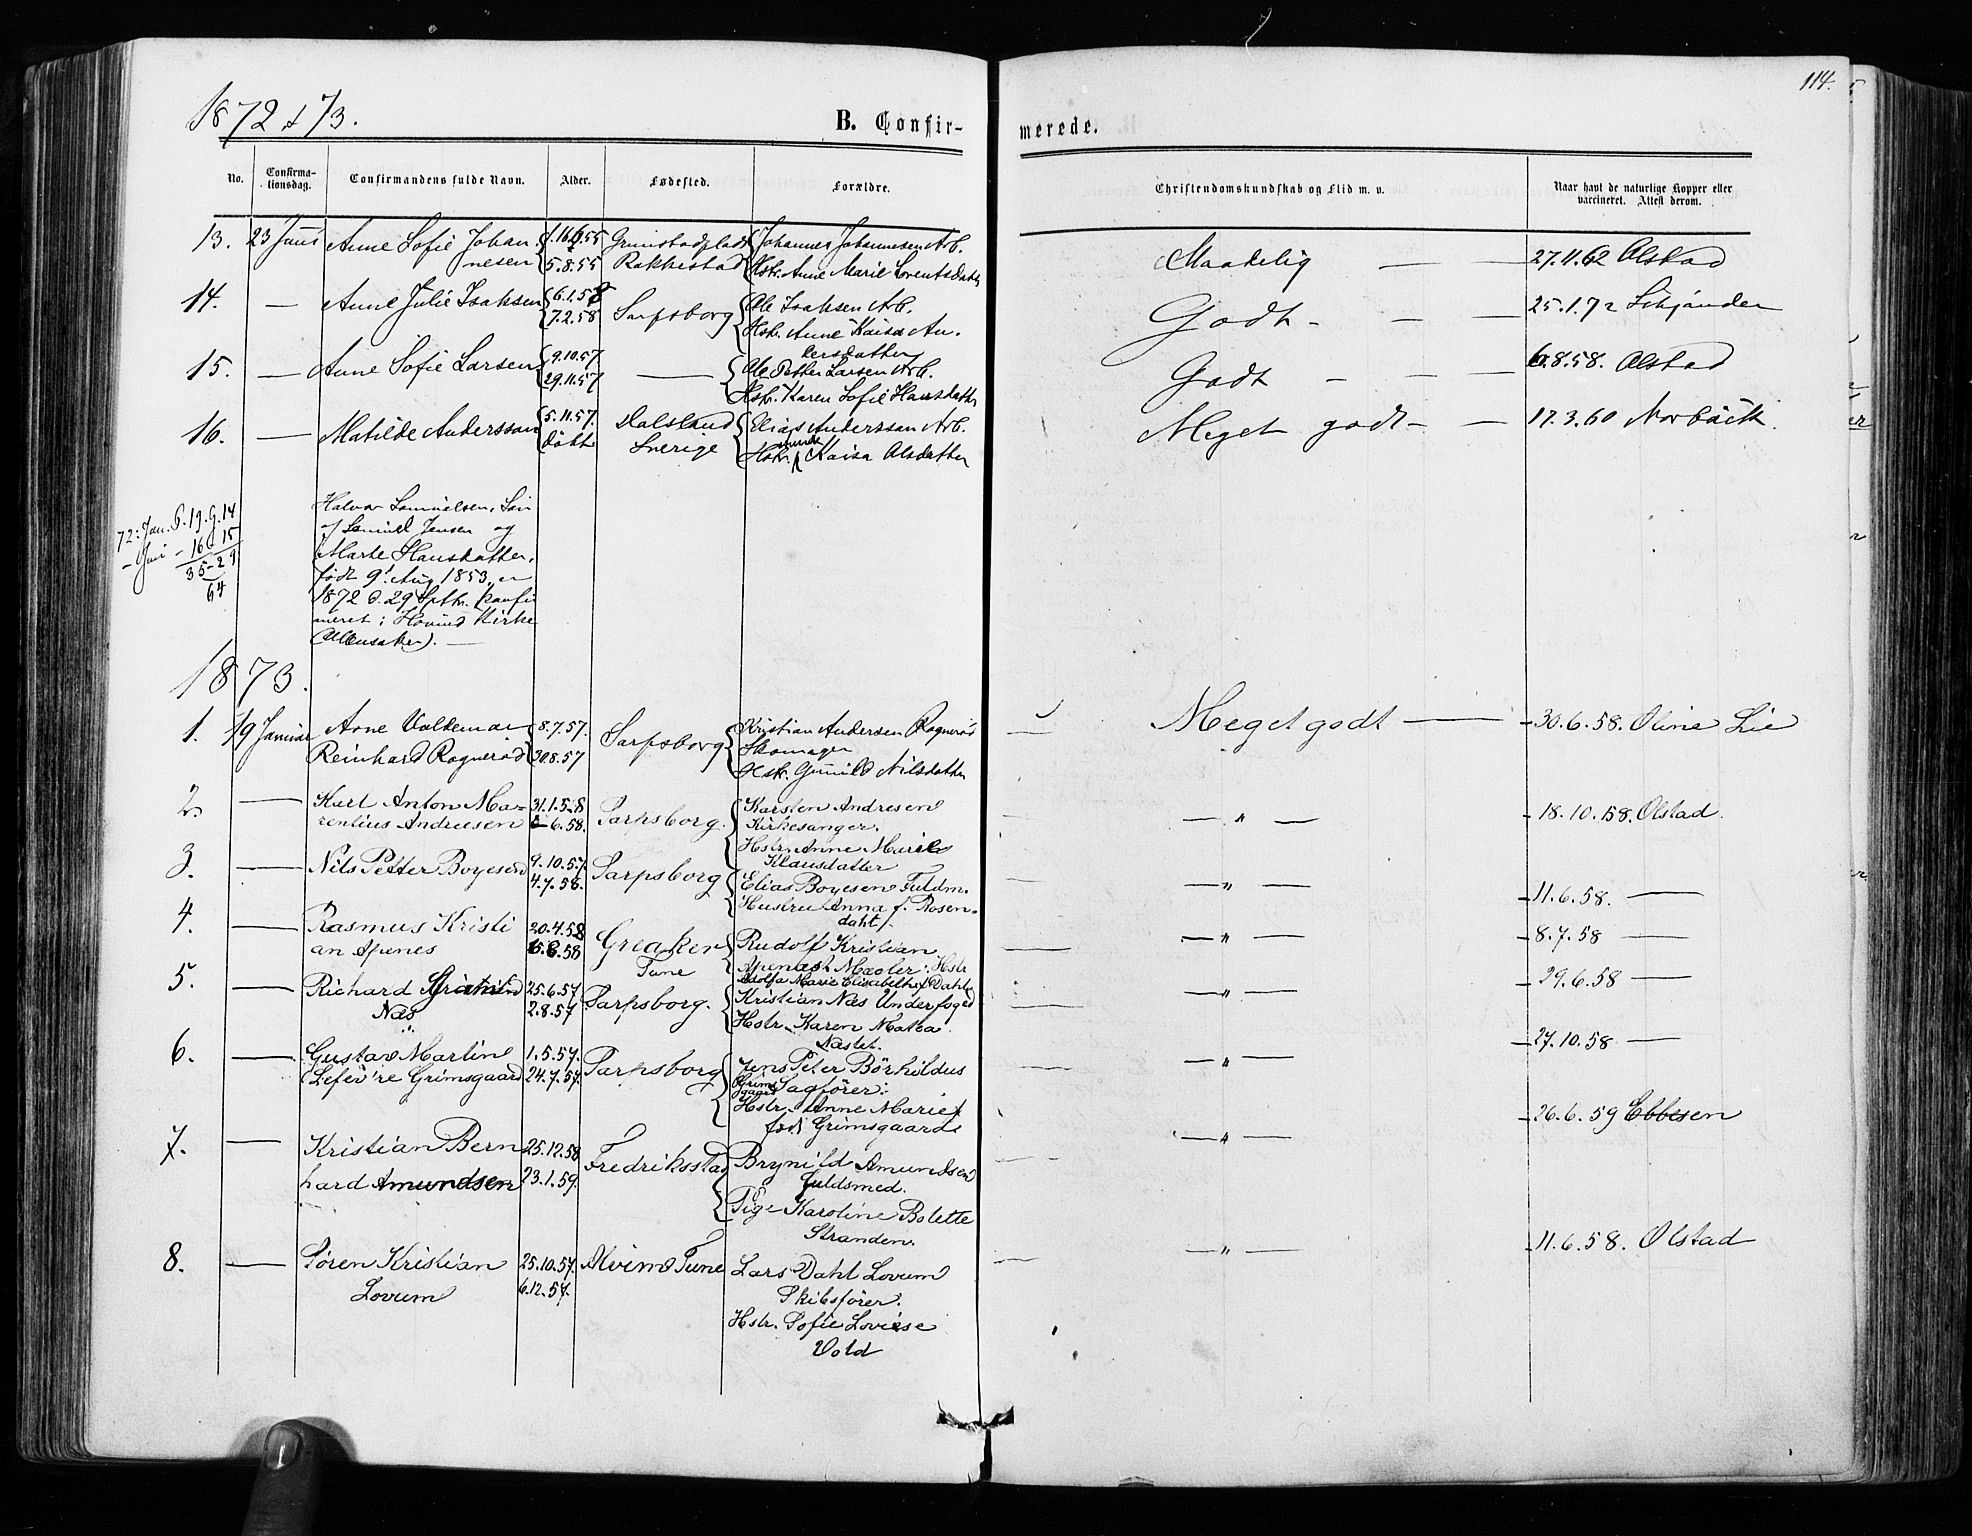 114.
1872 & 73.
B. Confir-
merede.
No.
Confirma-
tionsdag.
Confirmandens fulde Navn.
Alder.
Fødested.
Forældre.
Christendomskundskab og Flid m. v.
Naar havt de naturlige Kopper eller
vaccineret. Attest derom.
13. 23 Juni Anne Sofie Johan Grimstadplads Johannes Johannesen Arb.
nesen 5.8.55 Rakkestad Hstr. Anne Marie Lorentsdatter
Maadelig — — 27.11.62 Olstad
14. — Anne Julie Isaksen 6.1.58 Sarpsborg Ole Isaksen Arb.
7.2.58 Hstr. Anne Kaisa An-
dersdatter
Godt - — — 25.1.72
15. — Anne Sofie Larsen 9.10.57. — Ole Petter Larsen Arb.
29.11.57 Hstr. Karen Sofie Hansdatter
Godt — — — 6.8.58. Olstad
16. — Matilde Anderssan 5.11.57. Dalsland Elias Anderssan Arb.
døbt Sverige Hstr. Kaisa Olsdatter
Meget godt - — 17.3.60 Norbäck.
72: Jan. G. 19. 9. 14
- Juni - 16 15
35-29
64
Halvor Samuelsen, Søn
af Samuel Jensen og
Marte Hansdatter,
født 9. Aug 1853, er
1872 d. 29 Septbr. konfir
meret i Hovind Kirke
(Ullensaker). —
1873.
1. 19 Januar Arne Valdemar 8.7.57. Sarpsborg Kristian Andersen Rognerød
Reinhard Rognerød 30.8.57 Skomager
Hstr. Gunild Nilsdatter
Meget godt — 30.6.58. Oline Lie
2. — Karl Anton Ma- 31.1.58 Sarpsborg. Karsten Andresen
rentius Andresen 6.58. Kirkesanger.
Hstr. Anne Marie
Klausdatter
— " — 18.10.58. Olstad.
3. — Nils Petter Boyesen 9.10.57. Sarpsborg Elias Boyesen Fuldm.
4.7.58. Hustru Anna f. Rosen-
dahl.
— " — 11.6.58. —
4. — Rasmus Kristi 20.4.58 Greaker Rudolf Kristian
an Apenes 6.58 Tune Apenes Mægler: Hstr
Adolfa Marie Elisabeth f. Dahl
— " — 8.7.58 —
5. — Richard 25.6.57 Sarpsborg. Kristian Næs Underfoged
Næs 2.8.57 Hstr. Karen Matea
Næstet.
— " — 29.6.58 —
6. — Gustav Martin 1.5.57. Sarpsborg Jens Peter Börhildus
Lefev're Grimsgaard 24.7.57. Grims
gaard Sagfører:
Hstr. Anne Marie
født Grimsgaard
— " — 27.10.58 —
7. — Kristian Bern 25.12.58 Fredriksstad Brynild Amundsen
hard Amundsen 23.1.59. Guldsmed.
Pige Karoline Bolette
Stranden.
— " — 26.6.59 Ebbesen
8. — Søren Kristian 25.10.57. Alvim Tune Lars Dahl Lovum
Lovum 6.12.57. Skibsfører.
Hstr. Sofie Loviese
Vold
— " — 11.6.58. Olstad